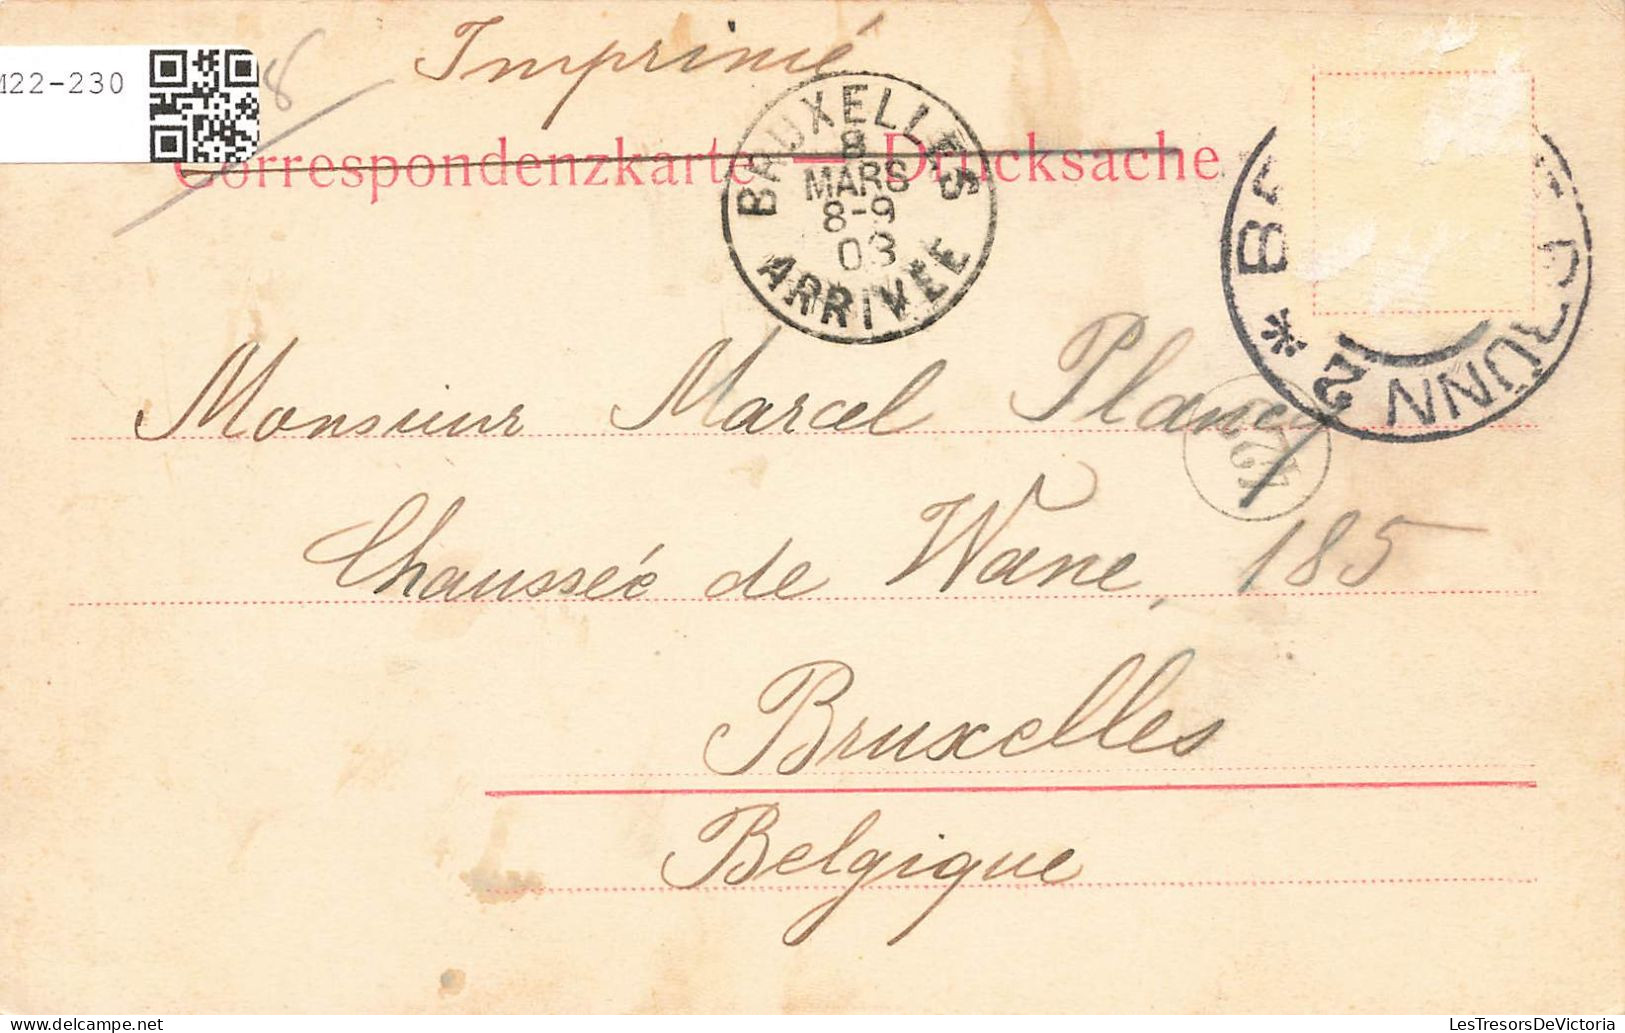 Imprimé
M22-230
8
Correspondenzkarte — Drucksache
BRUXELLES
8
MARS
8-9
03
ARRIVEE
BRÜNN 2 *
Monsieur Marcel Plancy
Chaussée de Wane, 185
Bruxelles
Belgique
LesTresorsDeVictoria